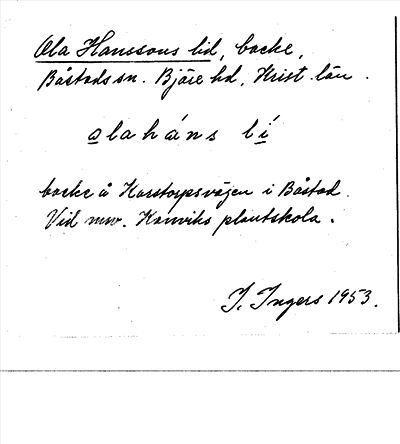 Ola Hanssons lid, backe,
Båstads sn. Bjäre hd, Krist. län.
alaháns lí
backe å Karstorpsvägen i Båstad.
Vid nuv. plantskola.
I. Ingers 1953.